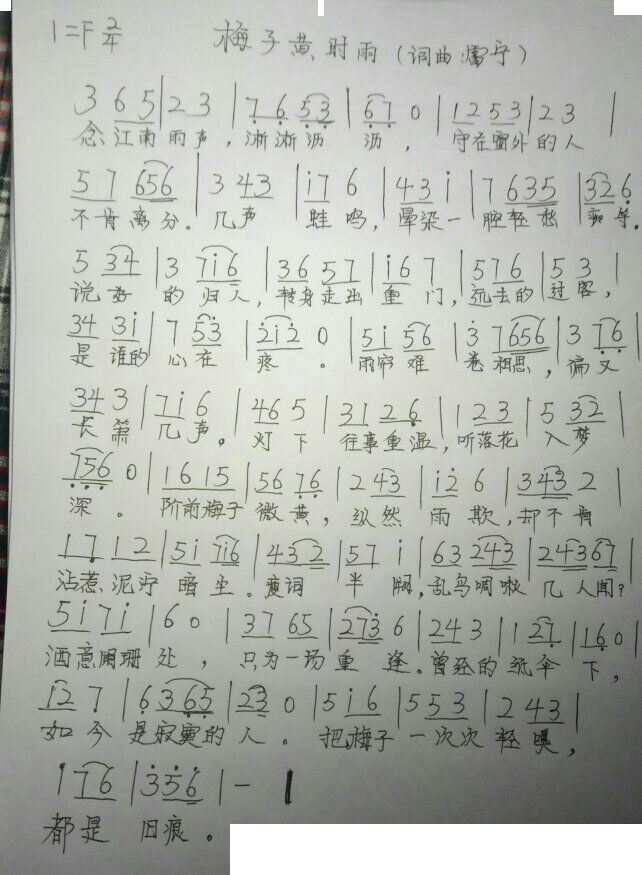 1=F 2/4 梅子黄时雨（词曲:儒宁）
3 65|23|76 53|67 0|12 53|23|
念江南雨声，淅淅沥 沥，守在窗外的人
57 656|3 43|i7 6|43 i|7 635|326
不肯离分。几声 蛙鸣，晕染一 腔轻愁
5 34|3 7i6|36 57|i6 7|576|53|
说好 的 归人，转身走出 重 门，远去的 过客，
34 3i|7 53|2i2 0|5i 56|3 7656|3 76
是 谁的 心在 疼 。雨帘难 卷相思，偏又
34 3|7i 6|46 5|31 26|123|5 32|
长箫 几声。灯 下 往事重温，听落花 入梦
756 0|16 15|56 76|2 43|i2 6|343 2|
深。 阶前梅子 微黄，纵然 雨 欺，却不肯
17 12|5i 7i6|43 2|57 i|63 243|24367|
沾惹泥泞 暗尘。 词 半 阕，乱鸟啁啾 几 人闻？
5i 7i|60|37 65|273 6|243|1 27|160|
酒意阑珊 处， 只为一场 重 逢。曾经的 纸伞 下，
i2 7|6 365|23 0|5i6|553|2 43|
如 今 是寂寞的 人。 把梅子 一次次 轻嗅，
1 76|356|—|
都是 旧痕。